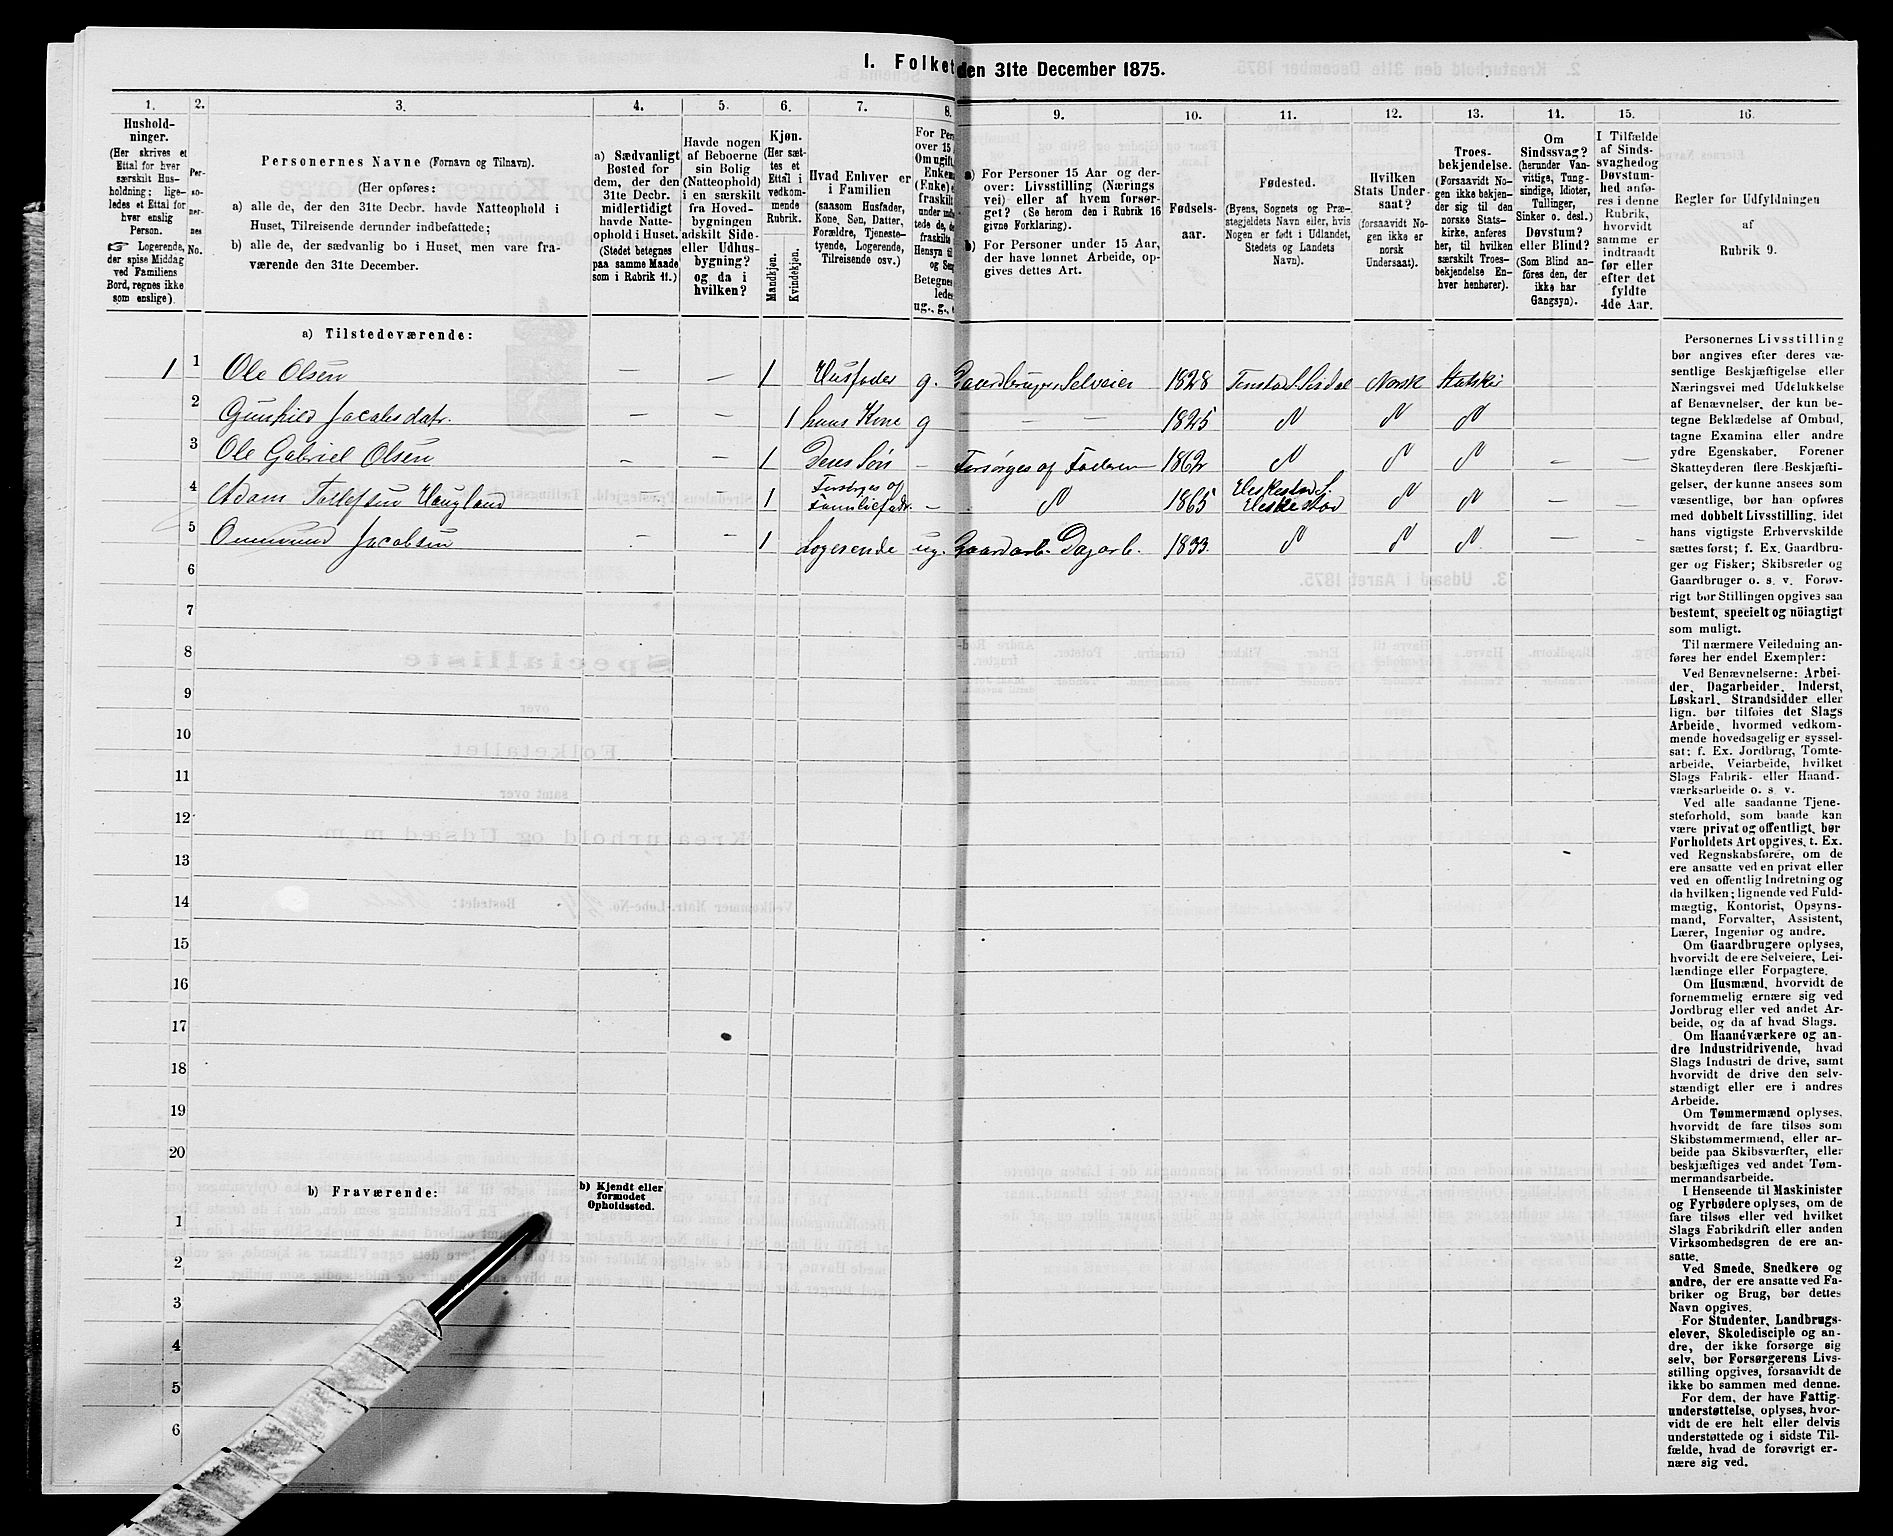 1. Folket den 31te December 1875.
1. 2. 3. 4. 5. 6. 7. 8. 9. 10. 11. 12. 13. 14. 15. 16.
Hushold-
ninger.
(Her skrives et
Ettal for hver
særskilt Hus-
holdning; lige-
ledes et Ettal for
hver enslig
Person.
☞ Logerende,
der spise Middag
ved Familiens
Bord, regnes ikke
som enslige)
Per-
so-
ner-
nes
No.
Personernes Navne (Fornavn og Tilnavn).
(Her opføres:
a) alle de, der den 31te Decbr. havde Natteophold i
Huset, Tilreisende derunder indbefattede;
b) alle de, der sædvanlig bo i Huset, men vare fra-
værende den 31te December.
a) Sædvanligt
Bosted for
dem, der den
31te Decbr.
midlertidigt
havde Natte-
ophold i Huset.
(Stedet betegnes
paa samme Maade
som i Rubrik 11.)
Havde nogen
af Beboerne
sin Bolig
(Natteophold)
i en særskilt
fra Hoved-
bygningen
adskilt Side-
eller Udhus-
bygning?
og da i
hvilken?
Kjøn.
(Her sæt-
tes et
Ettal i
vedkom-
mende
Rubrik.
Mandkjøn.
Kvindekjøn.
Hvad Enhver er
i Familien
(saasom Husfader,
Kone, Søn, Datter,
Forældre, Tjeneste-
tyende, Logerende,
Tilreisende osv.)
For Pers
over 15 A
Om ugift,
Enkema
(Enke) e
fraskilt
under indb
tede de, d
fraskilte
Hensyn til
og Sen
Betegnes
ledes
ug., g., e
a) For Personer 15 Aar og der-
over: Livsstilling (Nærings
vei) eller af hvem forsør-
get? (Se herom den i Rubrik 16
givne Forklaring).
b) For Personer under 15 Aar,
der have lønnet Arbeide, op-
gives dettes Art.
Fødsels-
aar.
Fødested.
(Byens, Sognets og Præ-
stegjeldets Navn eller, hvis
Nogen er født i Udlandet,
Stedets og Landets
Navn).
Hvilken
Stats Under-
saat?
(forsaavidt No-
gen ikke er
norsk
Undersaat).
Troes-
bekjendelse.
(Forsaavidt No-
gen ikke bekjen-
der sig til den
norske Stats-
kirke, anføres
her, til hvilken
særskilt Troes-
bekjendelse En-
hver henhører).
Om
Sindssvag?
(herunder Van-
vittige, Tung-
sindige, Idioter,
Tullinger,
Sinker o. desl.)
Døvstum?
eller Blind?
(Som Blind an-
føres den, der
ikke har
Gangsyn).
I Tilfælde
af Sinds-
svaghed og
Døvstum-
hed anfø-
res i denne
Rubrik,
hvorvidt
samme er
indtraadt
før eller
efter det
fyldte
4de Aar.
Regler for Udfyldningen
af
Rubrik 9.
a) Tilstedeværende:
1 1 Ole Olsen — 1 Husfader g. Gaardbruger Selveier 1828 Norsk
2 Gunhild Jacobsdatr. — — 1 hans Kone g — — 1825
3 Ole Gabriel Olsen — — 1 Deres Søn — Forsørges af Faderen 1862 — —
4 Adam Tollefsen Haugland — — 1 Forsørges af Familiefadr. — 1865 Heskestad S. Heskestad —
5 Ommund Jacobsen — — 1 Logerende ug. Gaardarb. Dagarb. 1833 — —
6
7
8
9
10
11
12
13
14
15
16
17
18
19
20
b) Fraværende:
b) Kjendt eller
formodet
Opholdssted.
1
2
3
4
5
6
Personernes Livsstilling
bør angives efter deres væ-
sentlige Beskjæftigelse eller
Næringsvei med Udelukkelse
af Benævnelser, der kun be-
tegne Beklædelse af Ombud,
tagne Examina eller andre
ydre Egenskaber. Forener
Skatteyderen flere Beskjæfti-
gelser, der kunne ansees som
væsentlige, bør han opføres
med dobbelt Livsstilling, idet
hans vigtigste Erhvervskilde
sættes først; f. Ex. Gaardbru-
ger og Fisker; Skibsreder og
Gaardbruger o. s. v. Forøv-
rigt bør Stillingen opgives saa
bestemt, specielt og nöiagtigt
som muligt.
Til nærmere Veiledning an-
føres her endel Exempler:
Ved Benævnelserne: Arbei-
der, Dagarbeider, Inderst,
Løskarl, Strandsidder eller
lign. bør tilføies det Slags
Arbeide, hvormed vedkom-
mende hovedsagelig er syssel-
sat; f. Ex. Jordbrug, Tomte-
arbeide, Veiarbeide, hvilket
Slags Fabrik- eller Haand-
værksarbeide o. s. v.
Ved alle saadanne Tjene-
steforhold, som baade kan
være privat og offentligt, bør
Forholdets Art opgives, t. Ex.
ved Regnskabsførere, om de
ere ansatte ved en privat eller
ved en offentlig Indretning og
da hvilken; lignende ved Fuld-
mægtig, Kontorist, Opsyns-
mand, Forvalter, Assistent,
Lærer, Ingeniør og andre.
Om Gaardbrugere oplyses,
hvorvidt de ere Selveiere, Lei-
lændinge eller Forpagtere.
Om Husmænd, hvorvidt de
fornemmelig ernære sig ved
Jordbrug eller ved andet Ar-
beide, og da af hvad Slags.
Om Haandværkere og an-
dre Industridrivende, hvad
Slags Industri de drive, samt
hvorvidt de drive den selv-
stændigt eller ere i andres
Arbeide.
Om Tømmermænd oplyses,
hvorvidt de fare tilsøs som
Skibstømmermænd, eller ar-
beide paa Skibsværfter, eller
beskjæftiges ved andet Tøm-
mermandsarbeide.
I Henseende til Maskinister
og Fyrbødere oplyses, om de
fare tilsøs eller ved hvilket
Slags Fabrikdrift eller anden
Virksomhedsgren de ere an-
satte.
Ved Smede, Snedkere og
andre, der ere ansatte ved Fa-
briker og Brug, bør dettes
Navn opgives.
For Studenter, Landbrugs-
elever, Skoledisciple og an-
dre, der ikke forsørge sig
selv, bør Forsørgerens Livs-
stilling opgives, forsaavidt de
ikke bo sammen med denne.
For dem, der have Fattig-
understøttelse, oplyses, hvor-
vidt de ere helt eller delvis
understøttede og i sidste Til-
fælde, hvad de forøvrigt er-
nære sig ved.